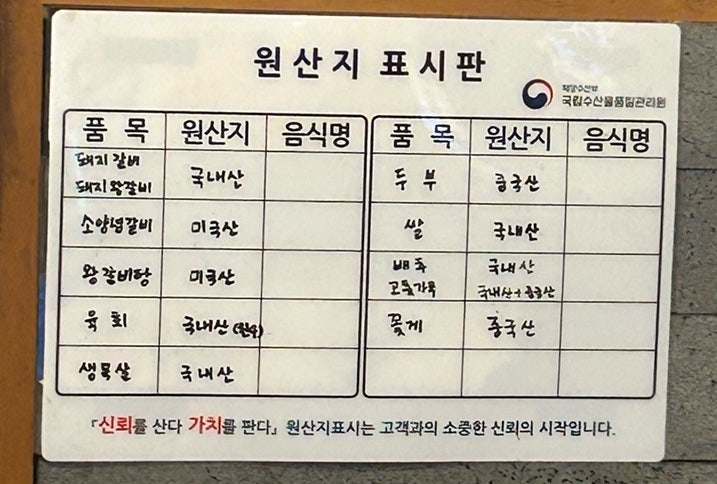 원산지 표시판
해양수산부
국립수산물품질관리원
품 목 원산지 음식명
돼지갈비
돼지왕갈비 국내산
소양념갈비 미국산
왕갈비탕 미국산
육회 국내산 (한우)
생목살 국내산
품 목 원산지 음식명
두부 중국산
쌀 국내산
배추 국내산
고춧가루 국내산+중국산
꽃게 중국산
『신뢰를 산다 가치를 판다』 원산지표시는 고객과의 소중한 신뢰의 시작입니다.